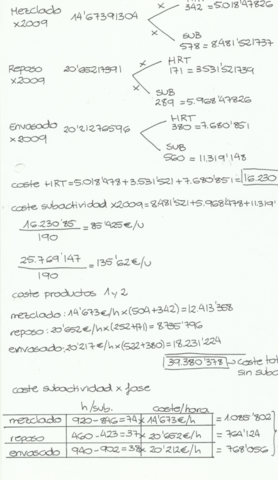 342 = 5.018'47826
Mezclado x2009 14'67391304
SUB
578 = 8481'521737
HRT
171 = 3531'521739
Reposo x2009 20'65217391
SUB
289 = 5.968'47826
HRT
380 = 7.680'851
Envasado x2009 20'21276596
SUB
560 = 11.319'148
coste HRT = 5.018'478 + 3.531'521 + 7.680'851 = 16.230
coste subactividad x2009 = 8481'521 + 5.968'478 + 11.319'
16.230'85 / 190 = 85'425 €/u
25.769'147 / 190 = 135'62 €/u
coste productos 1 y 2
mezclado: 14'673 €/h x (504 + 342) = 12.413'358
reposo: 20'652 €/h x (252 + 171) = 8735'796
envasado: 20'217 €/h x (522 + 380) = 18.231'224
39.380'378 → coste tot
sin suba
coste subactividad x fase
h/sub. coste/hora
mezclado 920 - 846 = 74 x 14'673 €/h = 1.085'802
reposo 460 - 423 = 37 x 20'652 €/h = 764'124
envasado 940 - 902 = 38 x 20'212 €/h = 768'056